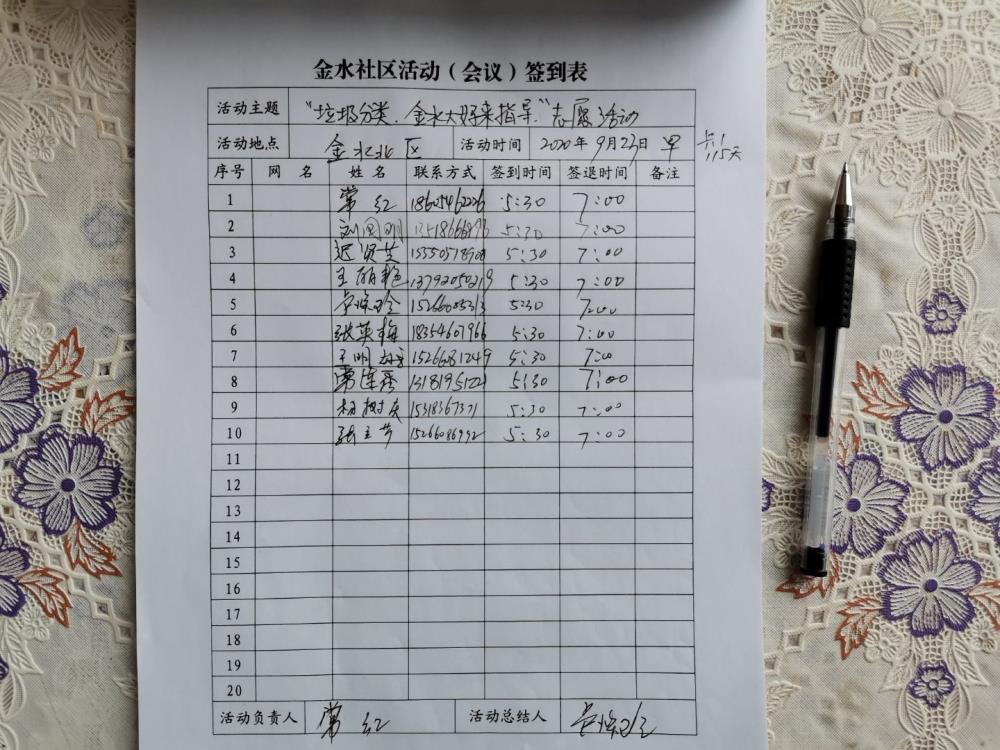 金水社区活动（会议）签到表
活动主题 “垃圾分类、金水大嫂来指导”志愿活动
活动地点 金水北区 活动时间 2020年9月23日 早
序号 网 名 姓 名 联系方式 签到时间 签退时间 备注
1 常红 5:30 7:00
2 刘国明 5:30 7:00
3 迟贤芝 5:30 7:00
4 王丽艳 13792050219 5:30 7:00
5 5:30 7:00
6 张英梅 18354607966 5:30 7:00
7 15266081249 5:30 7:00
8 5:30 7:00
9 杨树庆 5:30 7:00
10 5:30 7:00
11
12
13
14
15
16
17
18
19
20
活动负责人 常红 活动总结人